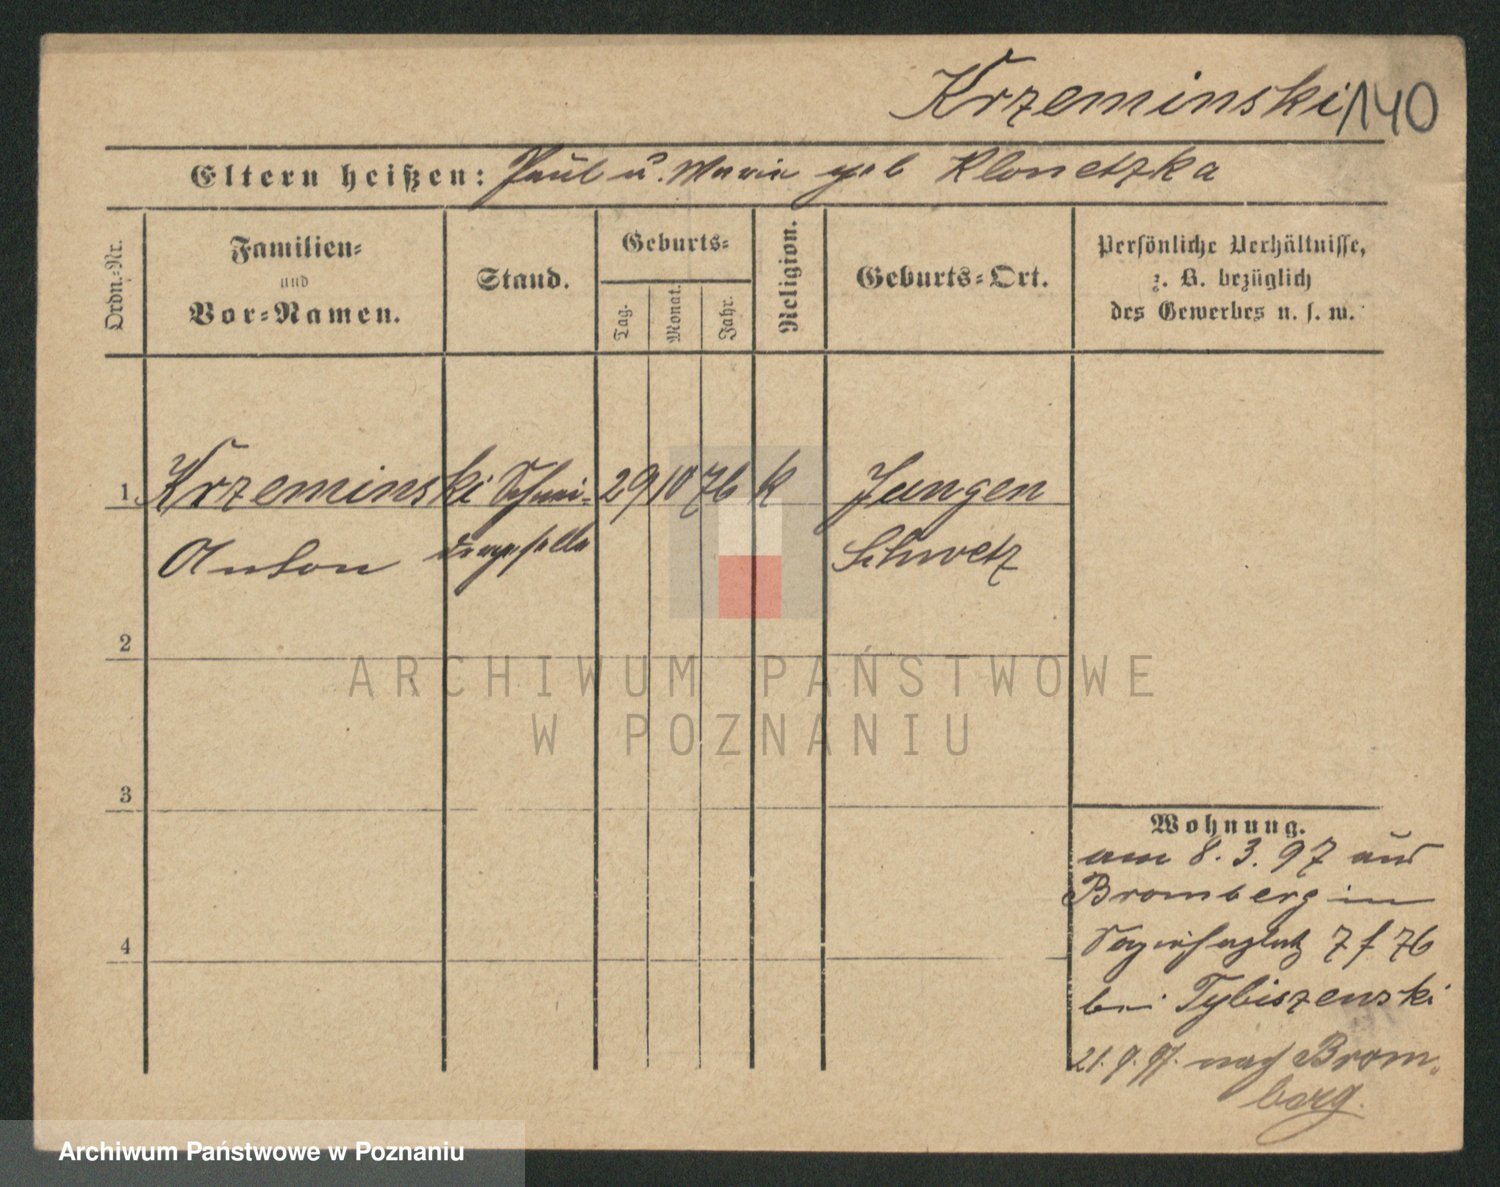 Krzeminski 140
Eltern heißen: Paul u. Marie geb Klonetzka
Ordn.-Nr.
Familien-
und
Vor-Namen.
Stand.
Geburts-
Tag.
Monat.
Jahr.
Religion.
Geburts-Ort.
Persönliche Verhältnisse,
z. B. bezüglich
des Gewerbes u. s. w.
1 Krzeminski Schnei- 29 10 76 k Jungen
Anton dergeselle Schwetz
2
ARCHIWUM PAŃSTWOWE
W POZNANIU
3
Wohnung.
am 8. 3. 97 aus
Bromberg in
7 f 76
bei Tybiszenski
21.9.97. nach Brom-
berg.
4
Archiwum Państwowe w Poznaniu